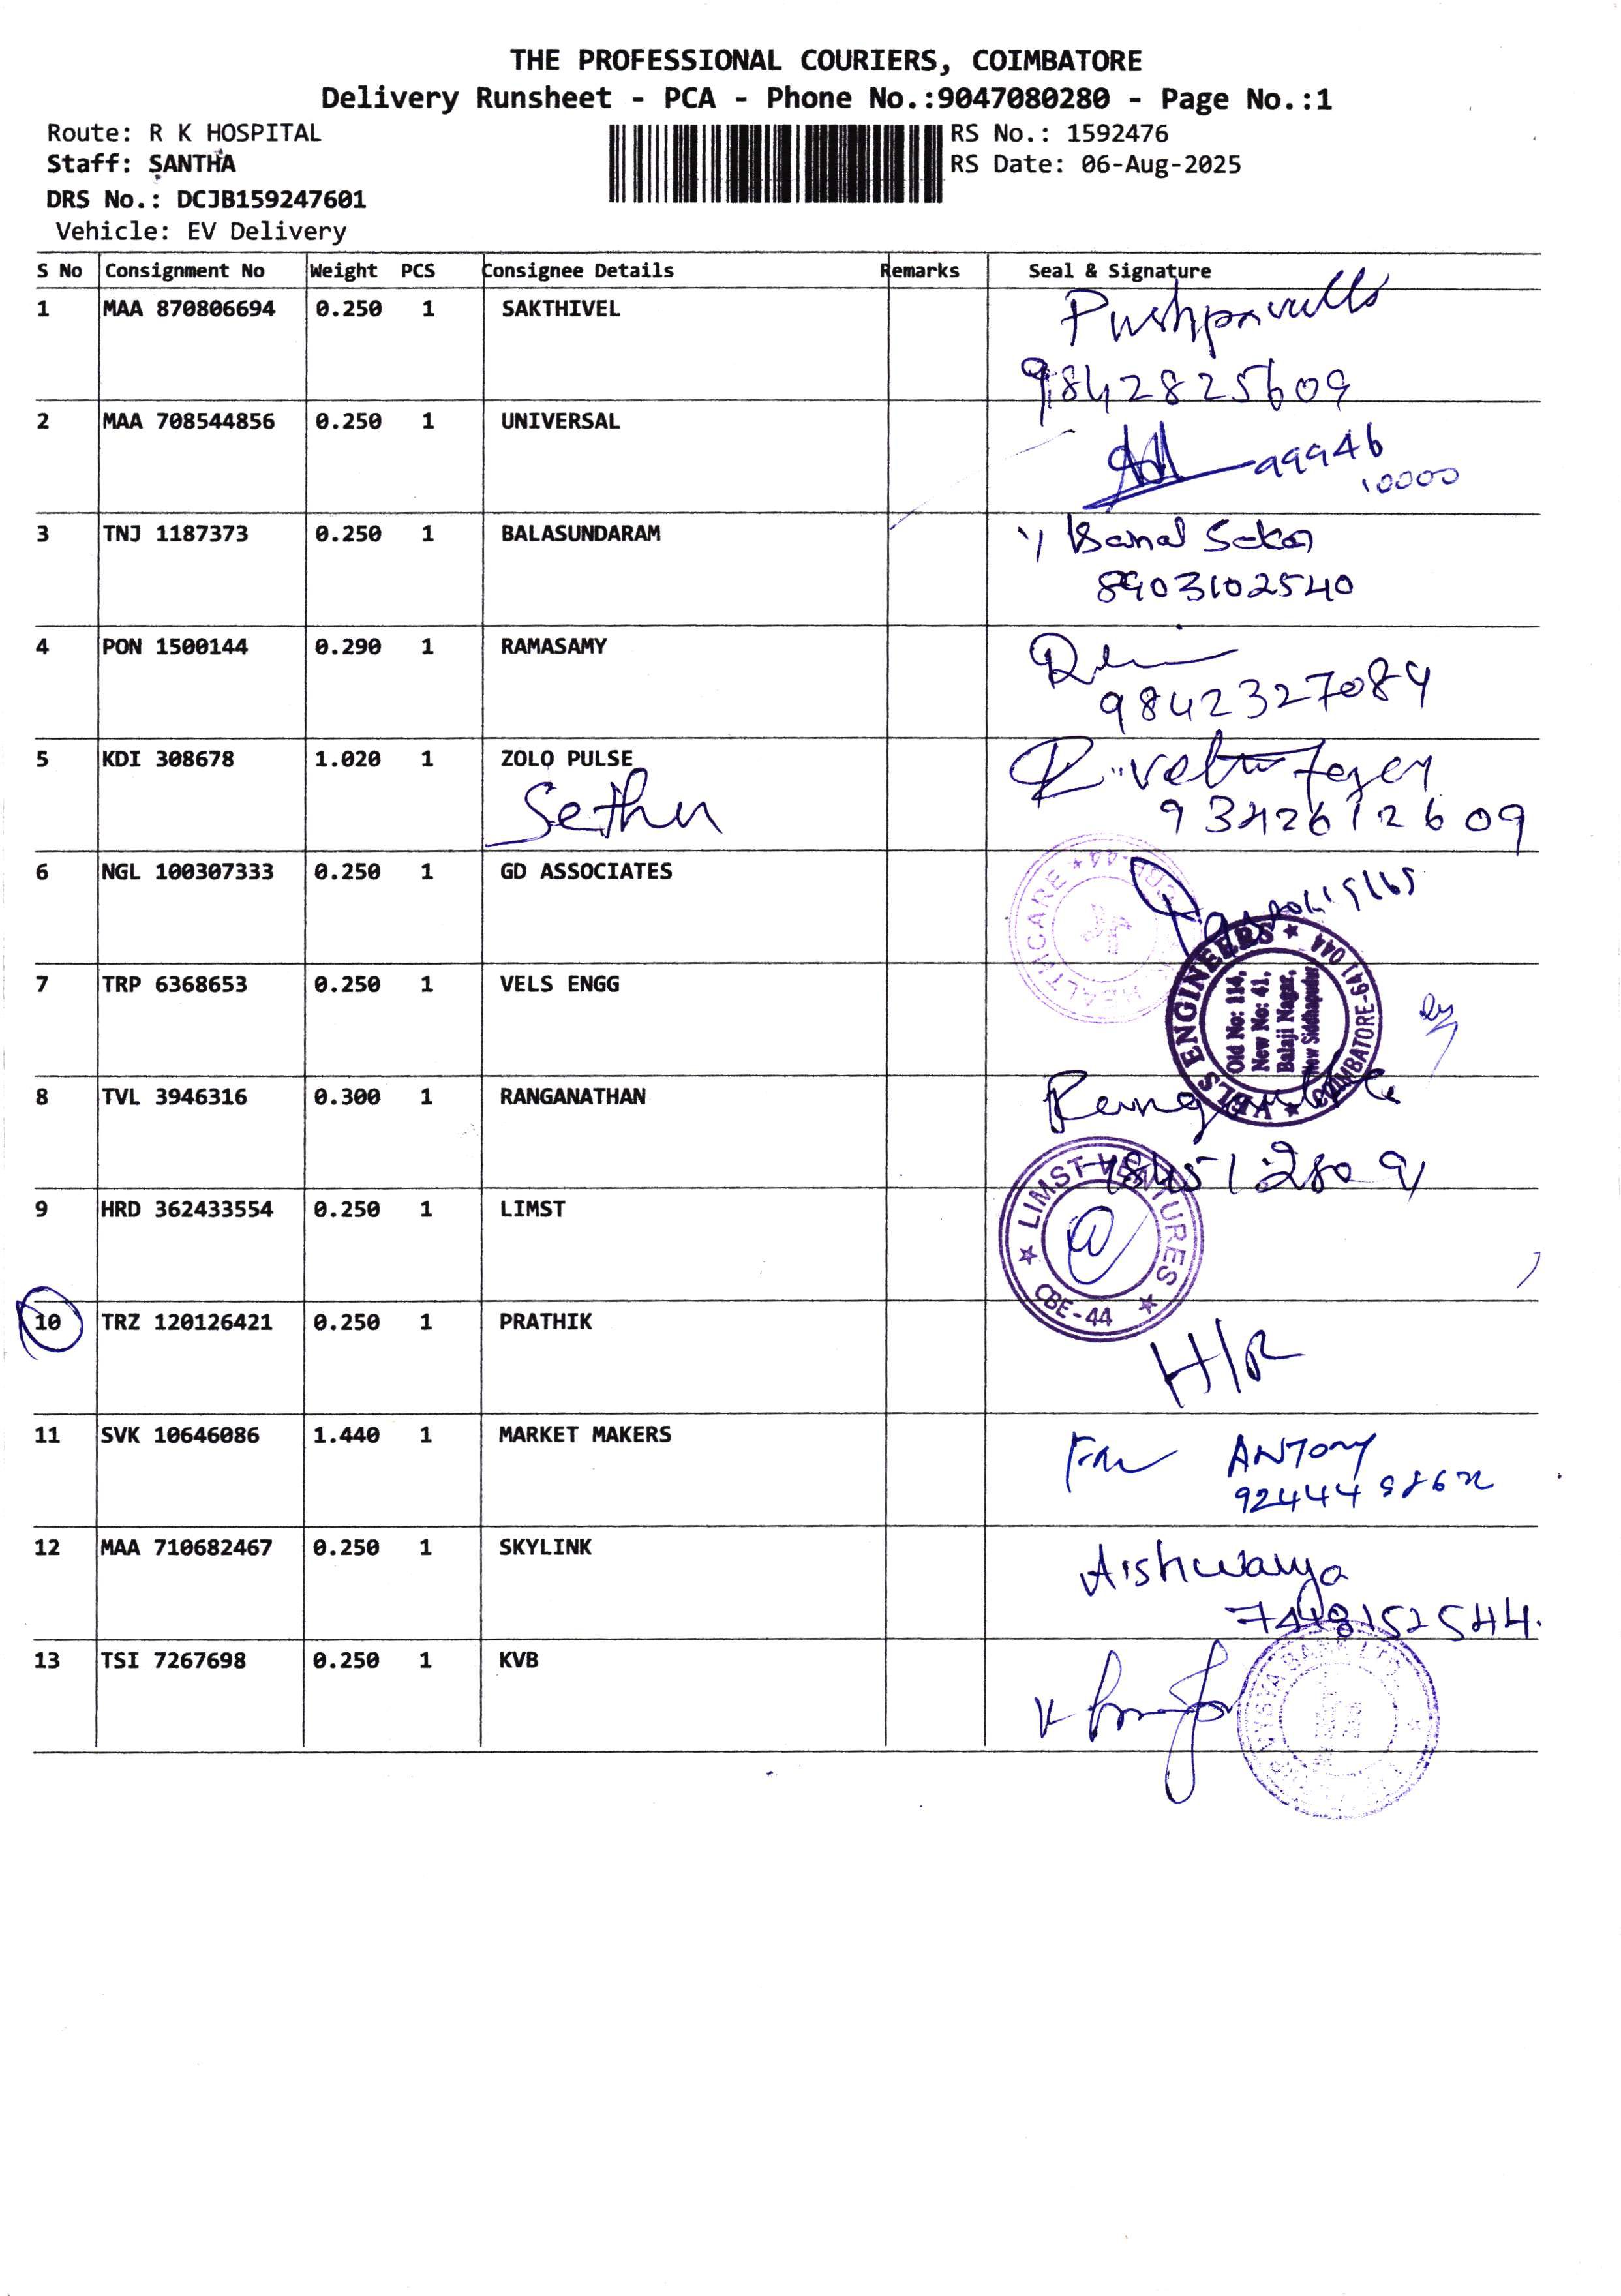 THE PROFESSIONAL COURIERS, COIMBATORE
Delivery Runsheet - PCA - Phone No.:9047080280 - Page No.:1
Route: R K HOSPITAL
RS No.: 1592476
Staff: SANTHA
RS Date: 06-Aug-2025
DRS No.: DCJB159247601
Vehicle: EV Delivery
S No Consignment No Weight PCS Consignee Details Remarks Seal & Signature
1 MAA 870806694 0.250 1 SAKTHIVEL
9842825609
2 MAA 708544856 0.250 1 UNIVERSAL
99946
10000
3 TNJ 1187373 0.250 1 BALASUNDARAM
8903102540
4 PON 1500144 0.290 1 RAMASAMY
9842327084
5 KDI 308678 1.020 1 ZOLO PULSE
Sethu
9342612609
6 NGL 100307333 0.250 1 GD ASSOCIATES
HEALTHCARE
7 TRP 6368653 0.250 1 VELS ENGG
VELS ENGINEERS ★ COIMBATORE-641 044 ★
Old No: 114,
New No: 41,
Balaji Nagar,
New Siddhapudur
8 TVL 3946316 0.300 1 RANGANATHAN
9 HRD 362433554 0.250 1 LIMST
★ LIMST VENTURES ★ CBE-44
10 TRZ 120126421 0.250 1 PRATHIK
H/R
11 SVK 10646086 1.440 1 MARKET MAKERS
ANTONY
12 MAA 710682467 0.250 1 SKYLINK
Aishwarya
13 TSI 7267698 0.250 1 KVB
VYSYA BANK LTD